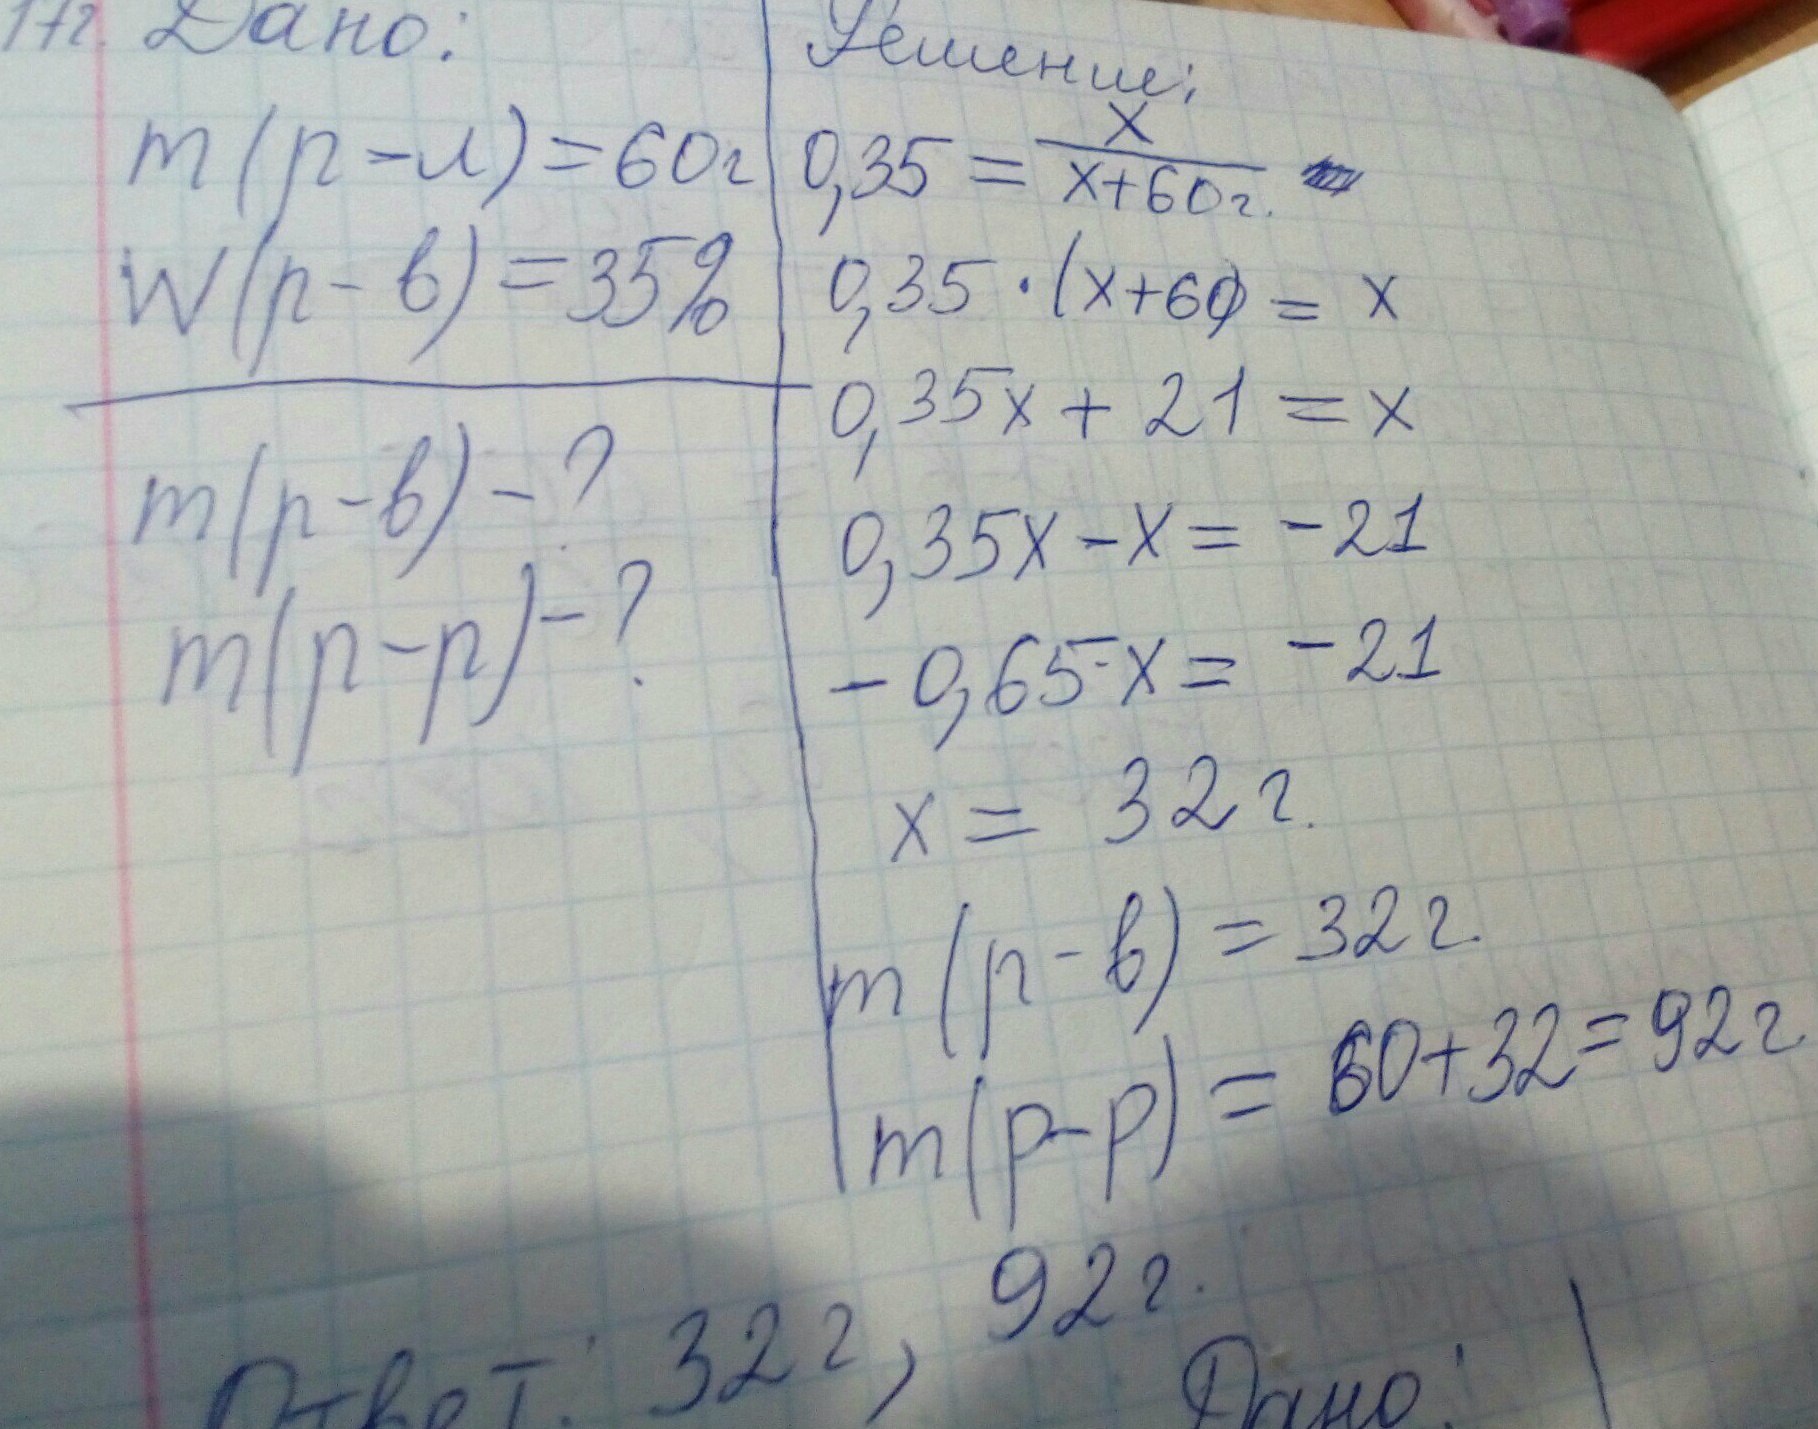 172. Дано:
m(р-л)=60г
W(р-в)=35%
m(р-в)-?
m(р-р)-?
Решение:
0,35 = x/(x+60г.
0,35 · (x+60) = x
0,35x + 21 = x
0,35x - x = -21
-0,65x = -21
x = 32г.
m(р-в) = 32г.
m(р-р) = 60+32=92г
Ответ: 32г, 92г.
Дано: